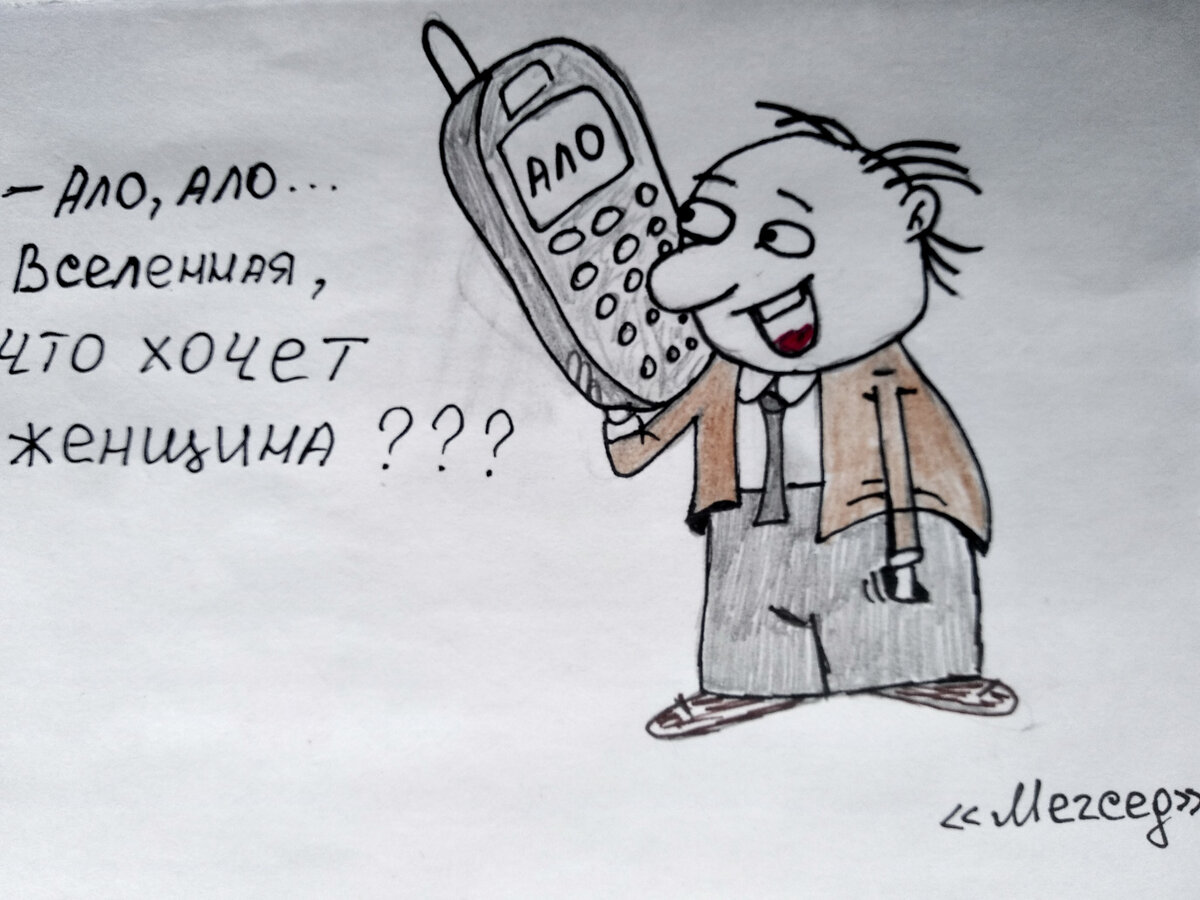 - Ало, ало...
Вселенная,
что хочет
женщина ???
АЛО
«Мегсед»